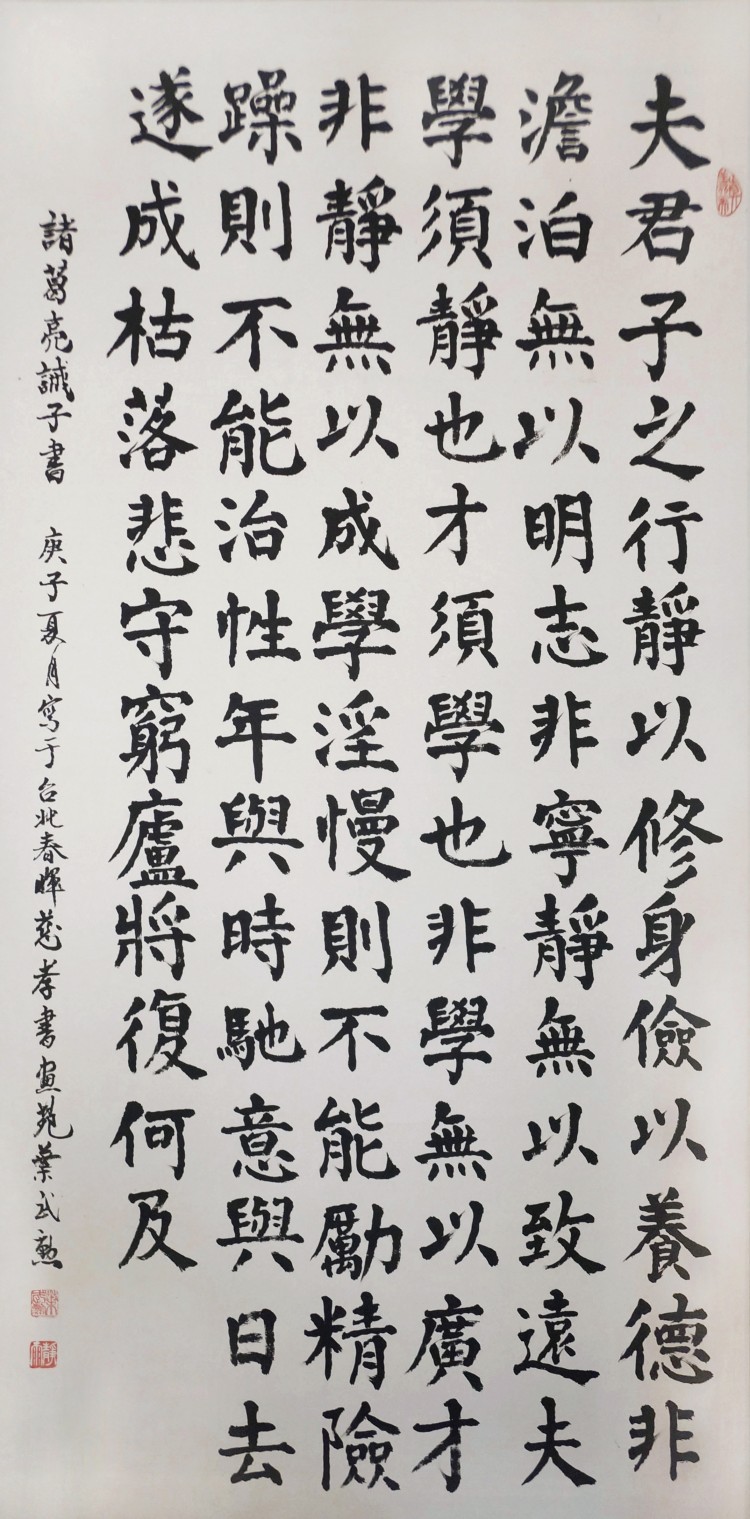 夫君子之行靜以修身儉以養德非
澹泊無以明志非寧靜無以致遠夫
學須靜也才須學也非學無以廣才
非靜無以成學淫慢則不能勵精險
躁則不能治性年與時馳意與日去
遂成枯落悲守窮廬將復何及
諸葛亮誡子書 庚子夏月寫于台北春暉慈孝書畫苑葉武勲